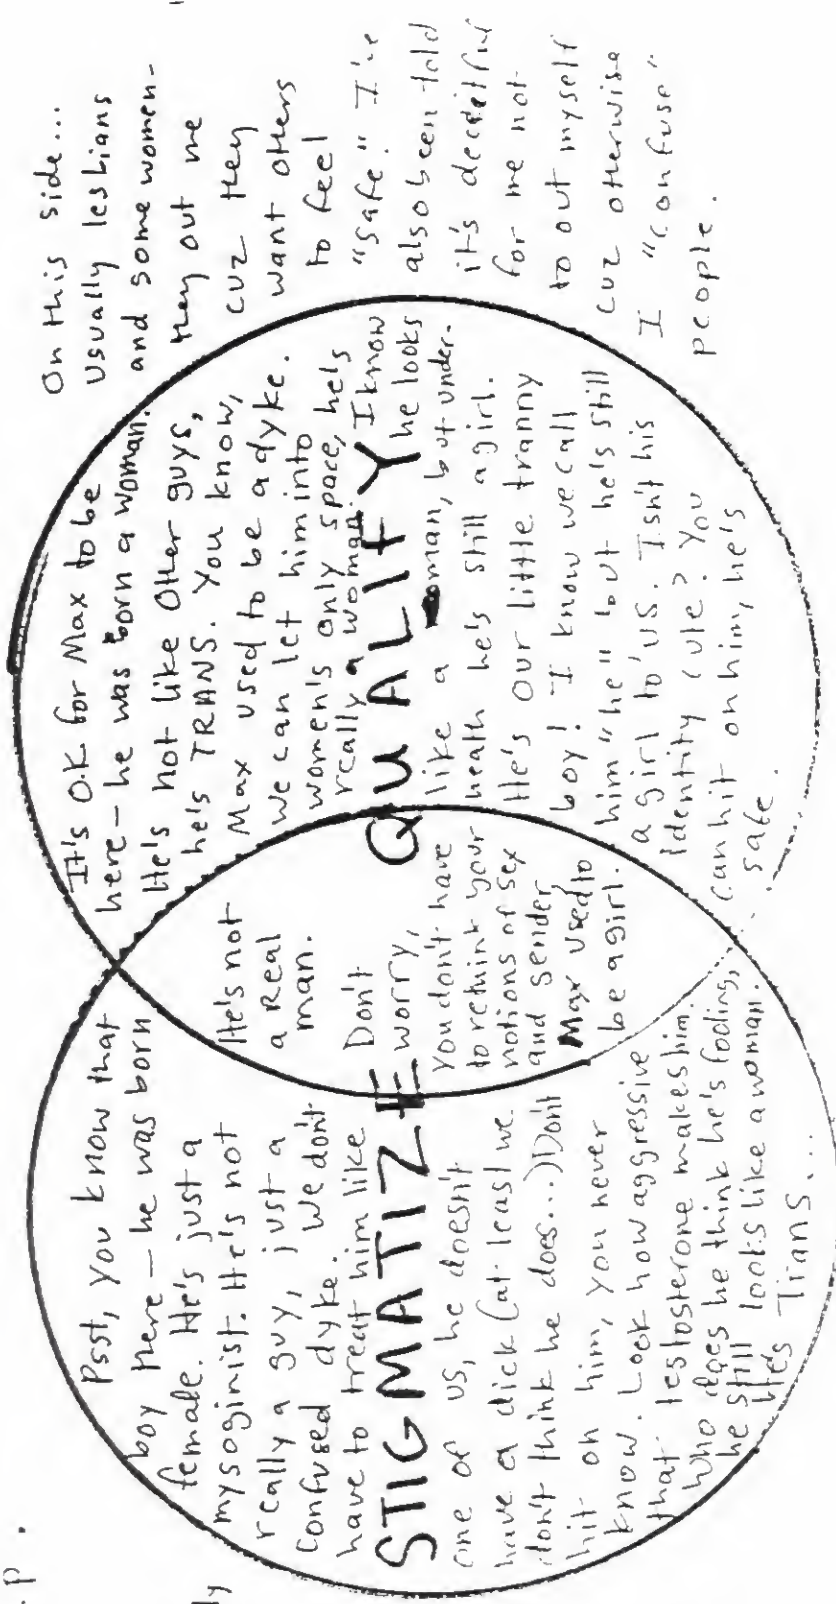 .P.
ly
Psst, you know that
boy there – he was born
female. He's just a
mysoginist. He's not
really a guy, just a
confused dyke. We don't
have to treat him like
STIGMATIZE
one of us, he doesn't
have a dick (at least we
don't think he does...) Don't
hit on him, you never
know. Look how aggressive
that testosterone makes him.
Who does he think he's fooling,
he still looks like a woman.
He's Trans...
He's not
a Real
man.
Don't
worry,
you don't have
to rethink your
notions of sex
and gender,
Max used to
be a girl.
It's O.K. for Max to be
here – he was born a woman.
He's not like other guys,
he's TRANS. You know,
Max used to be a dyke.
We can let him into
women's only space, he's
really a woman. I know
QUALIFY
he looks
like a woman, but under-
neath he's still a girl.
He's our little tranny
boy! I know we call
him "he" but he's still
a girl to US. Isn't his
identity cute? You
can hit on him, he's
safe.
On this side...
Usually lesbians
and some women-
they out me
cuz they
want others
to feel
"safe." I've
also been told
it's deceitful
for me not
to out myself
cuz otherwise
I "confuse"
people.